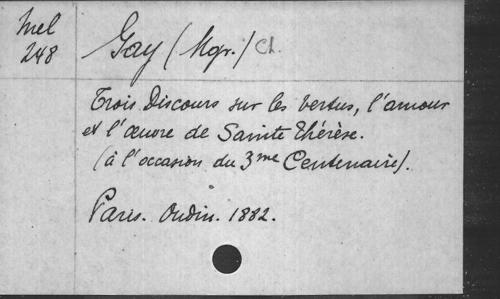 Mel
248
Gay (Mgr.) Ch.
Trois Discours sur les vertus, l'amour
et l'œuvre de Sainte Thérèse.
(à l'occasion du 3me Centenaire).
Paris. Oudin. 1882.